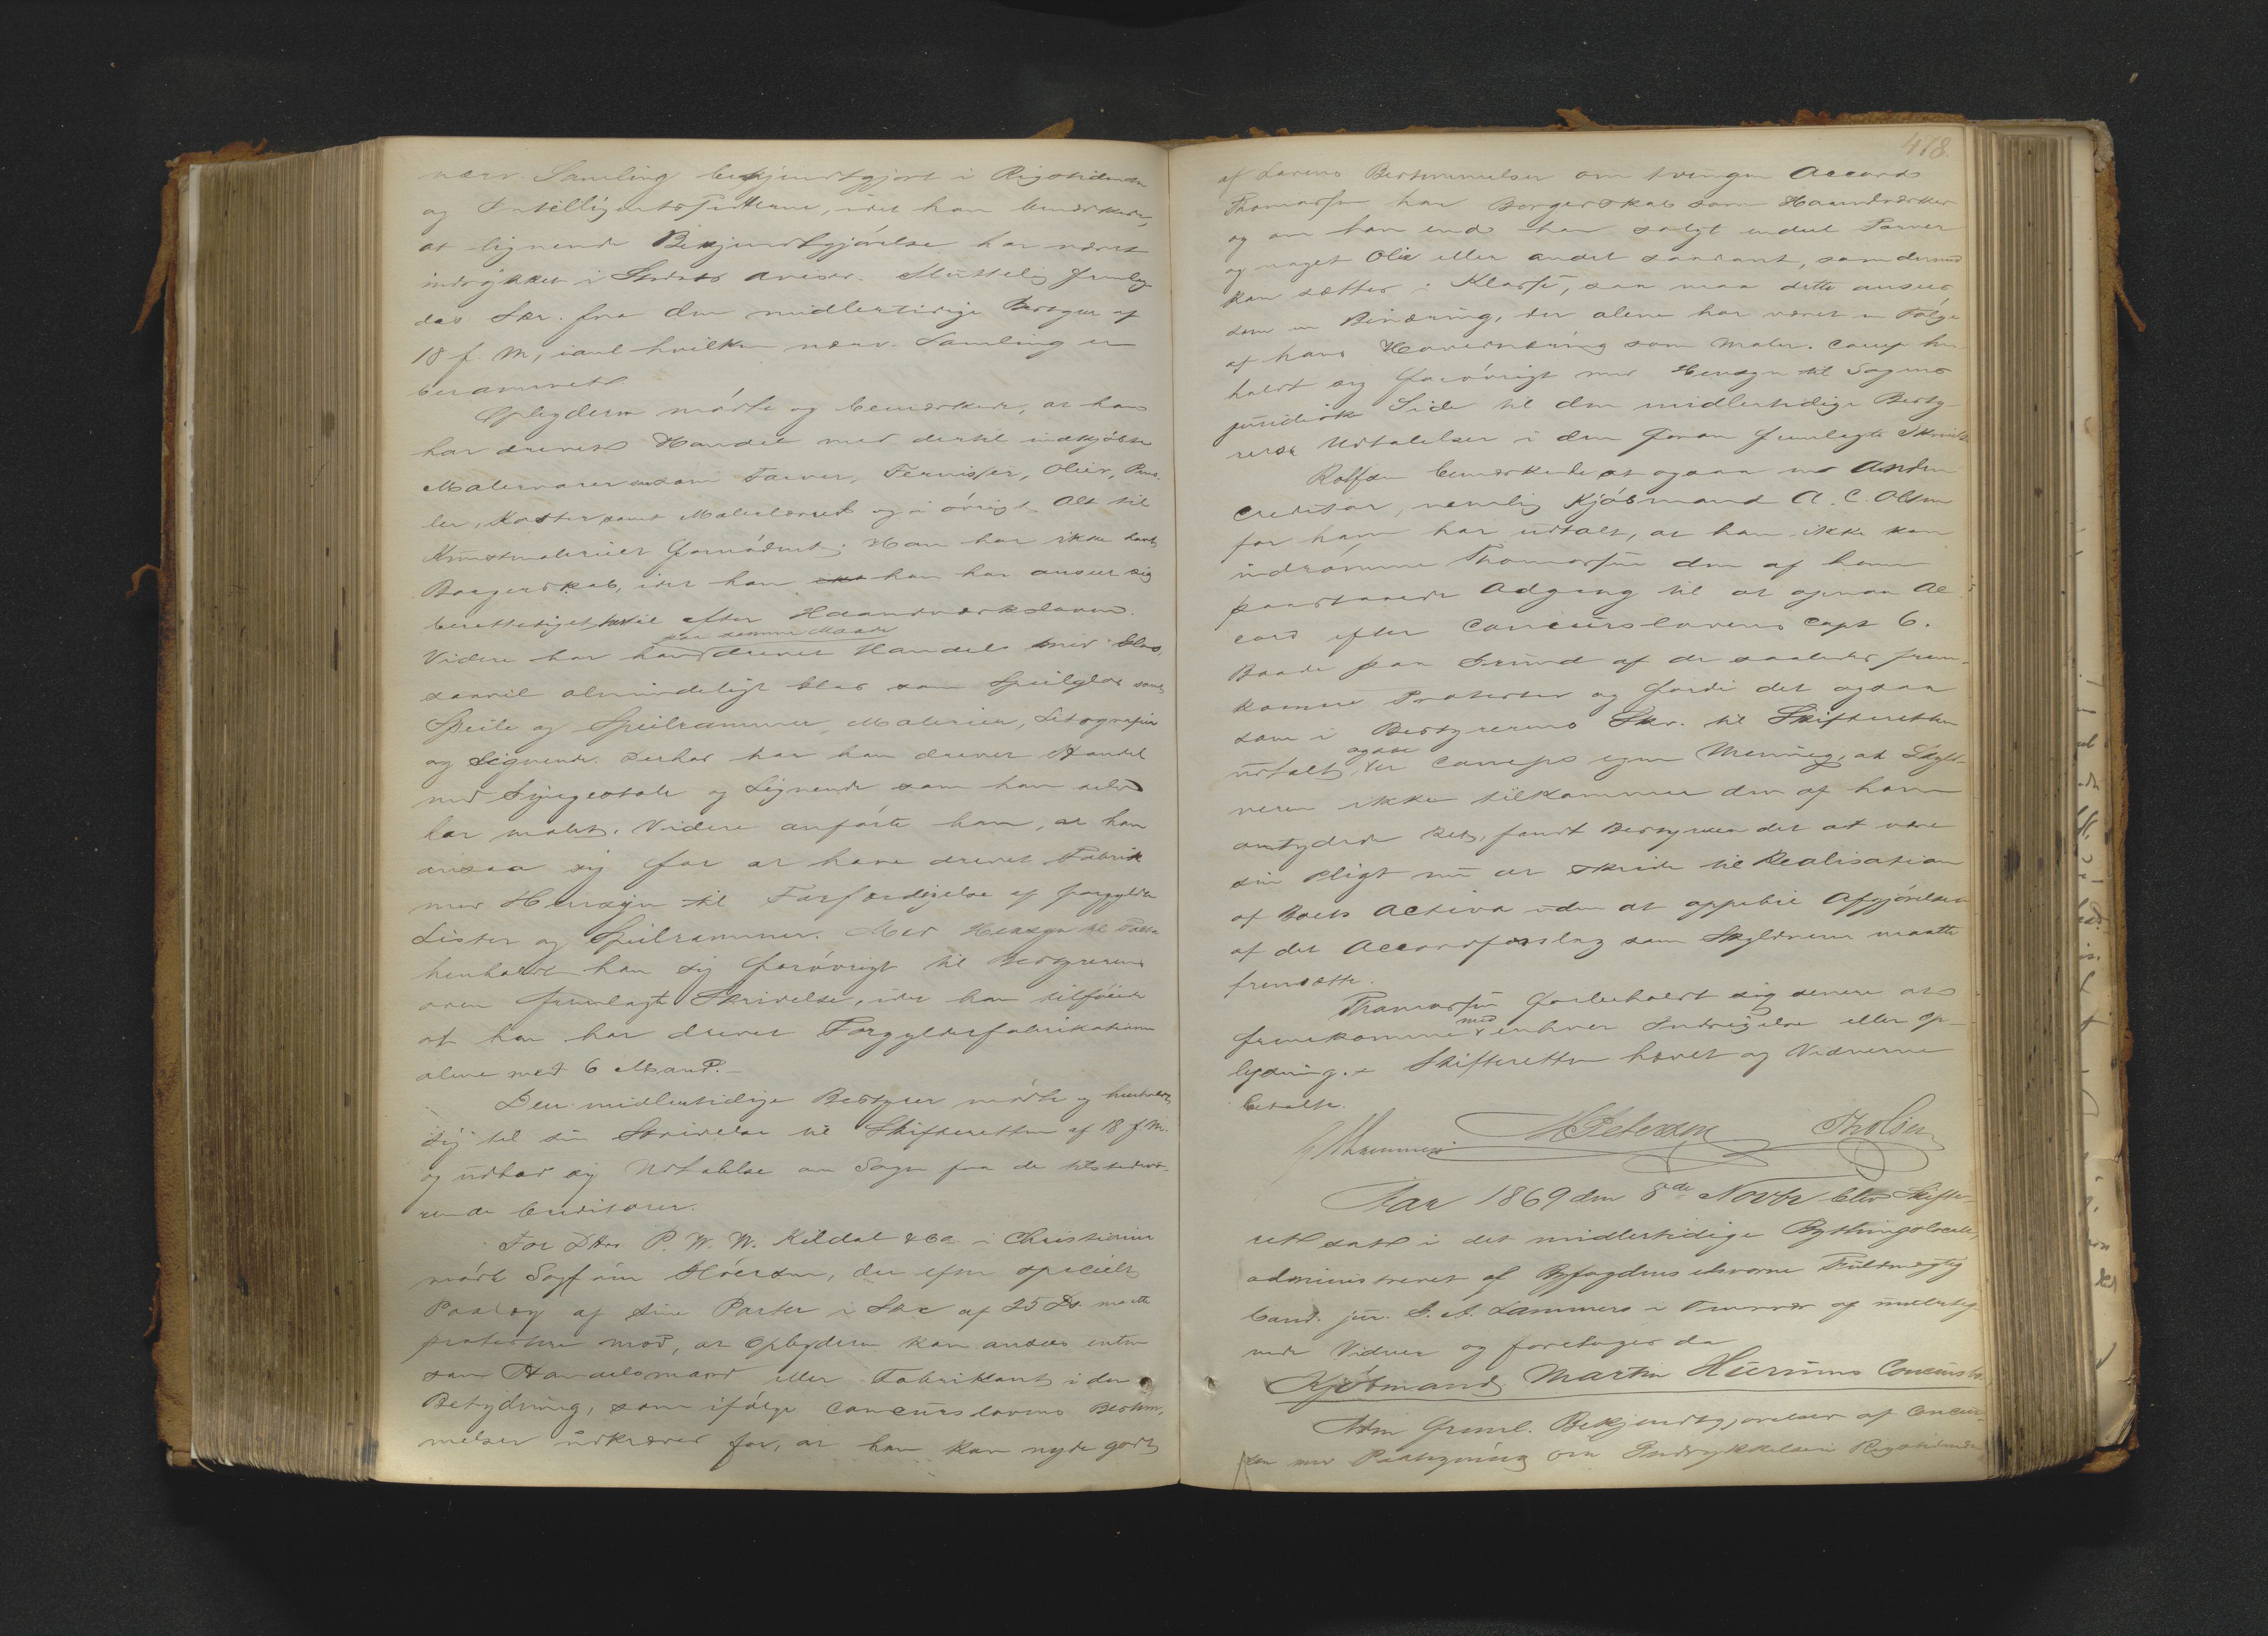 nærv. Samling bekjendtgjort i Rigstidende
og Intelligentssedlerne, idet han bemærkede,
at lignende Bekjendtgjørelse har været
indrykket i Stedets Aviser. Skiftelig fremlag
des Skr. fra den midlertidige Bestyrer af
18 f. M, hvilken nærv. Samling er
berammet.
Opbyderen mødte og bemærkede, at han
har drevet Handel med dertil indkjøbte
Malervarer saasom Farver, Fernisser, Olier, Pens
ler, Koster samt Malerlærred og i øvrigt Alt til
Kunstmalerier fornødent; Han har ikke havt
Borgerskab, idet han har anseet sig
berettiget hertil efter Haandværksloven.
paa samme Maade
Videre har han drevet Handel med Glas,
saavel almindeligt Glas som Speilglas samt
Speile og Speilrammer, Malerier, Litografier
og Lignende. Derhos har han drevet Handel
med Syngestole og Lignende som han selv
har malet. Videre anførte han, at han
ansaa sig for at have drevet Fabrik
med Hensyn til Forfærdigelse af forgyldte
Lister og Speilrammer. Med Hensyn til
henholdt han sig forøvrigt til Bestyrerens
oven fremlagte Skrivelse, idet han tilføiede
at han har drevet Forgylderfabrikationen
alene med 6 Mand.
Den midlertidige Bestyrer mødte og henholdt
sig til sin Skrivelse til Skifteretten af 18 f.M.
og udbad sig Udtalelse om Sagen fra de tilstedevæ-
rende Creditorer.
For DHrr. P. W. W. Kildal & Co i Christiania
mødte Sagfører, der efter specielt
Paalæg af sine Parter i Skr af 25 ds. maatte
protestere mod, at Opbyderen kan ansees enten
som Handelsmand eller Fabrikant i den
Betydning, som ifølge Concurslovens Bestem,
melser udkræves for, at han kan nyde godt
478.
af Lovens Bestemmelser om tvungen Accord
Thomassen har Borgerskab som Haandværker
og om han end har solgt endeel Farver
og noget Olie eller andet saadant, som dermed
kan sættes i Klasse, saa maa dette ansees
som en Binæring, der alene har været en Følge
af hans Hovednæring som Maler. Comp hen
holdt sig forøvrigt med Hensyn til Sagens
juridisk Side til den midlertidige Besty-
rers Udtalelser i den foran fremlagte Skrivelse
bemærkede at ogsaa en Anden
Creditor, nemlig Kjøbmand A. C. Olsen
for ham har udtalt, at han ikke kan
indrømme Thomassen den af ham
paastaaede Adgang til at opnaa Ac
cord efter Concurslovens Cap 6.
Baade paa Grund af de saaledes frem-
komne Protester og fordi det ogsaa
som i Bestyrerens Skr. til Skifteretten
ogsaa
udtalt, er Comps egen Mening, at Skyld-
neren ikke tilkommer den af ham
antydede Ret, fandt Bestyreren det at være
sin Pligt nu at skride til Realisation
af Boets Activa uden at oppebie Afgjørelsen
af det Accordforslag som Skyldneren maatte
fremsætte.
Thomassen forbeholdt sig senere at
med
fremkomme enhver Indsigelse eller Op-
lysning. – Skifteretten hævet og Vidnerne
betalte.
Lammers M Petersen Olsen
Aar 1869 den 8de Novbr blev Skifte-
ret sat i det midlertidige Bythingslocale,
administreret af Byfogdens edsvorne Fuldmægtig
Cand. jur. G. A. Lammers i Overvær af underteg
nede Vidner og foretoges da
Kjøbmand Martin Hurums Concursbo.
Adm freml. Bekjendtgjørelser af Concur-
sen med Paategning om Indrykkelse i Rigstidende